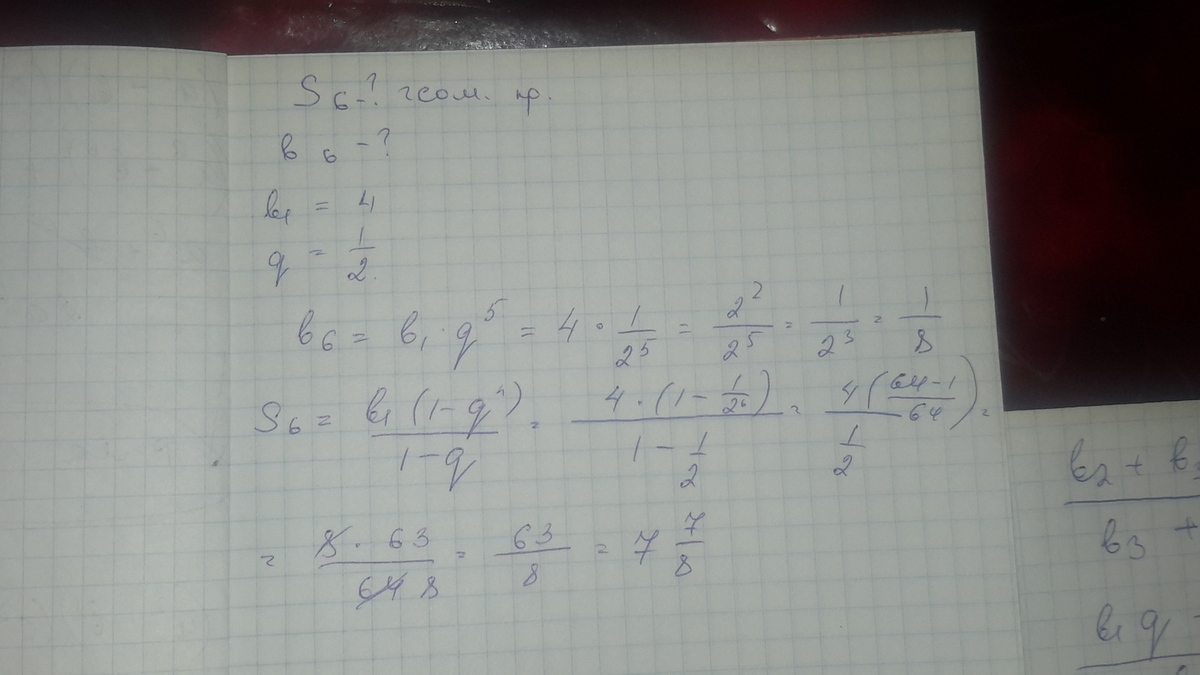 S₆ - ? геом. пр.
b₆ - ?
b₁ = 4
q = 1/2.
b₆ = b₁ · q⁵ = 4 · 1/2⁵ = 2²/2⁵ = 1/2³ = 1/8
S₆ = b₁ (1 - qⁿ)/(1 - q) = 4 · (1 - 1/2⁶)/(1 - 1/2) = 4 ((64 - 1)/64)/(1/2) =
= 8 · 63/64 8 = 63/8 = 7 7/8
b₂ + b
b₃ +
b₁ q